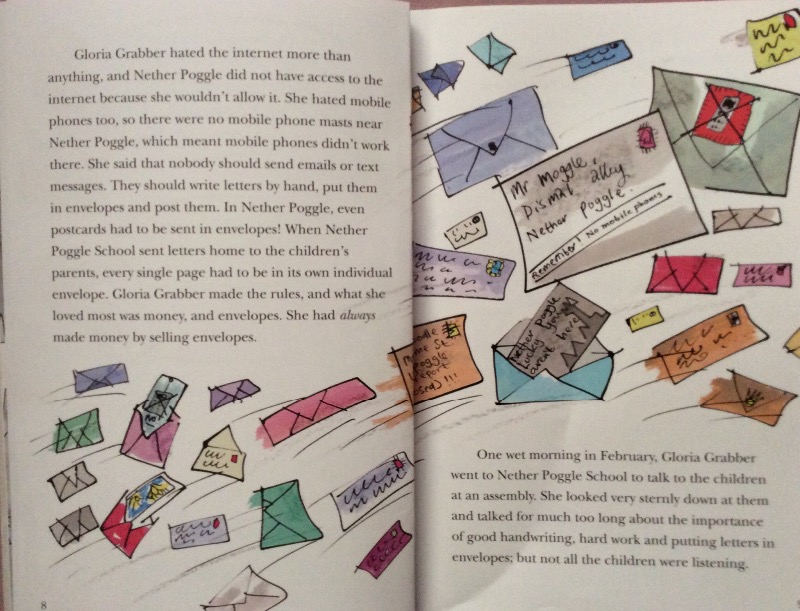 Gloria Grabber hated the internet more than
anything, and Nether Poggle did not have access to the
internet because she wouldn't allow it. She hated mobile
phones too, so there were no mobile phone masts near
Nether Poggle, which meant mobile phones didn't work
there. She said that nobody should send emails or text
messages. They should write letters by hand, put them
in envelopes and post them. In Nether Poggle, even
postcards had to be sent in envelopes! When Nether
Poggle School sent letters home to the children's
parents, every single page had to be in its own individual
envelope. Gloria Grabber made the rules, and what she
loved most was money, and envelopes. She had always
made money by selling envelopes.
8
Mr Moggle,
Dismal alley
Nether Poggle.
Remember! No mobile phones
Nether Poggle
Lucky you
arent here!
St
Poggle
One wet morning in February, Gloria Grabber
went to Nether Poggle School to talk to the children
at an assembly. She looked very sternly down at them
and talked for much too long about the importance
of good handwriting, hard work and putting letters in
envelopes; but not all the children were listening.